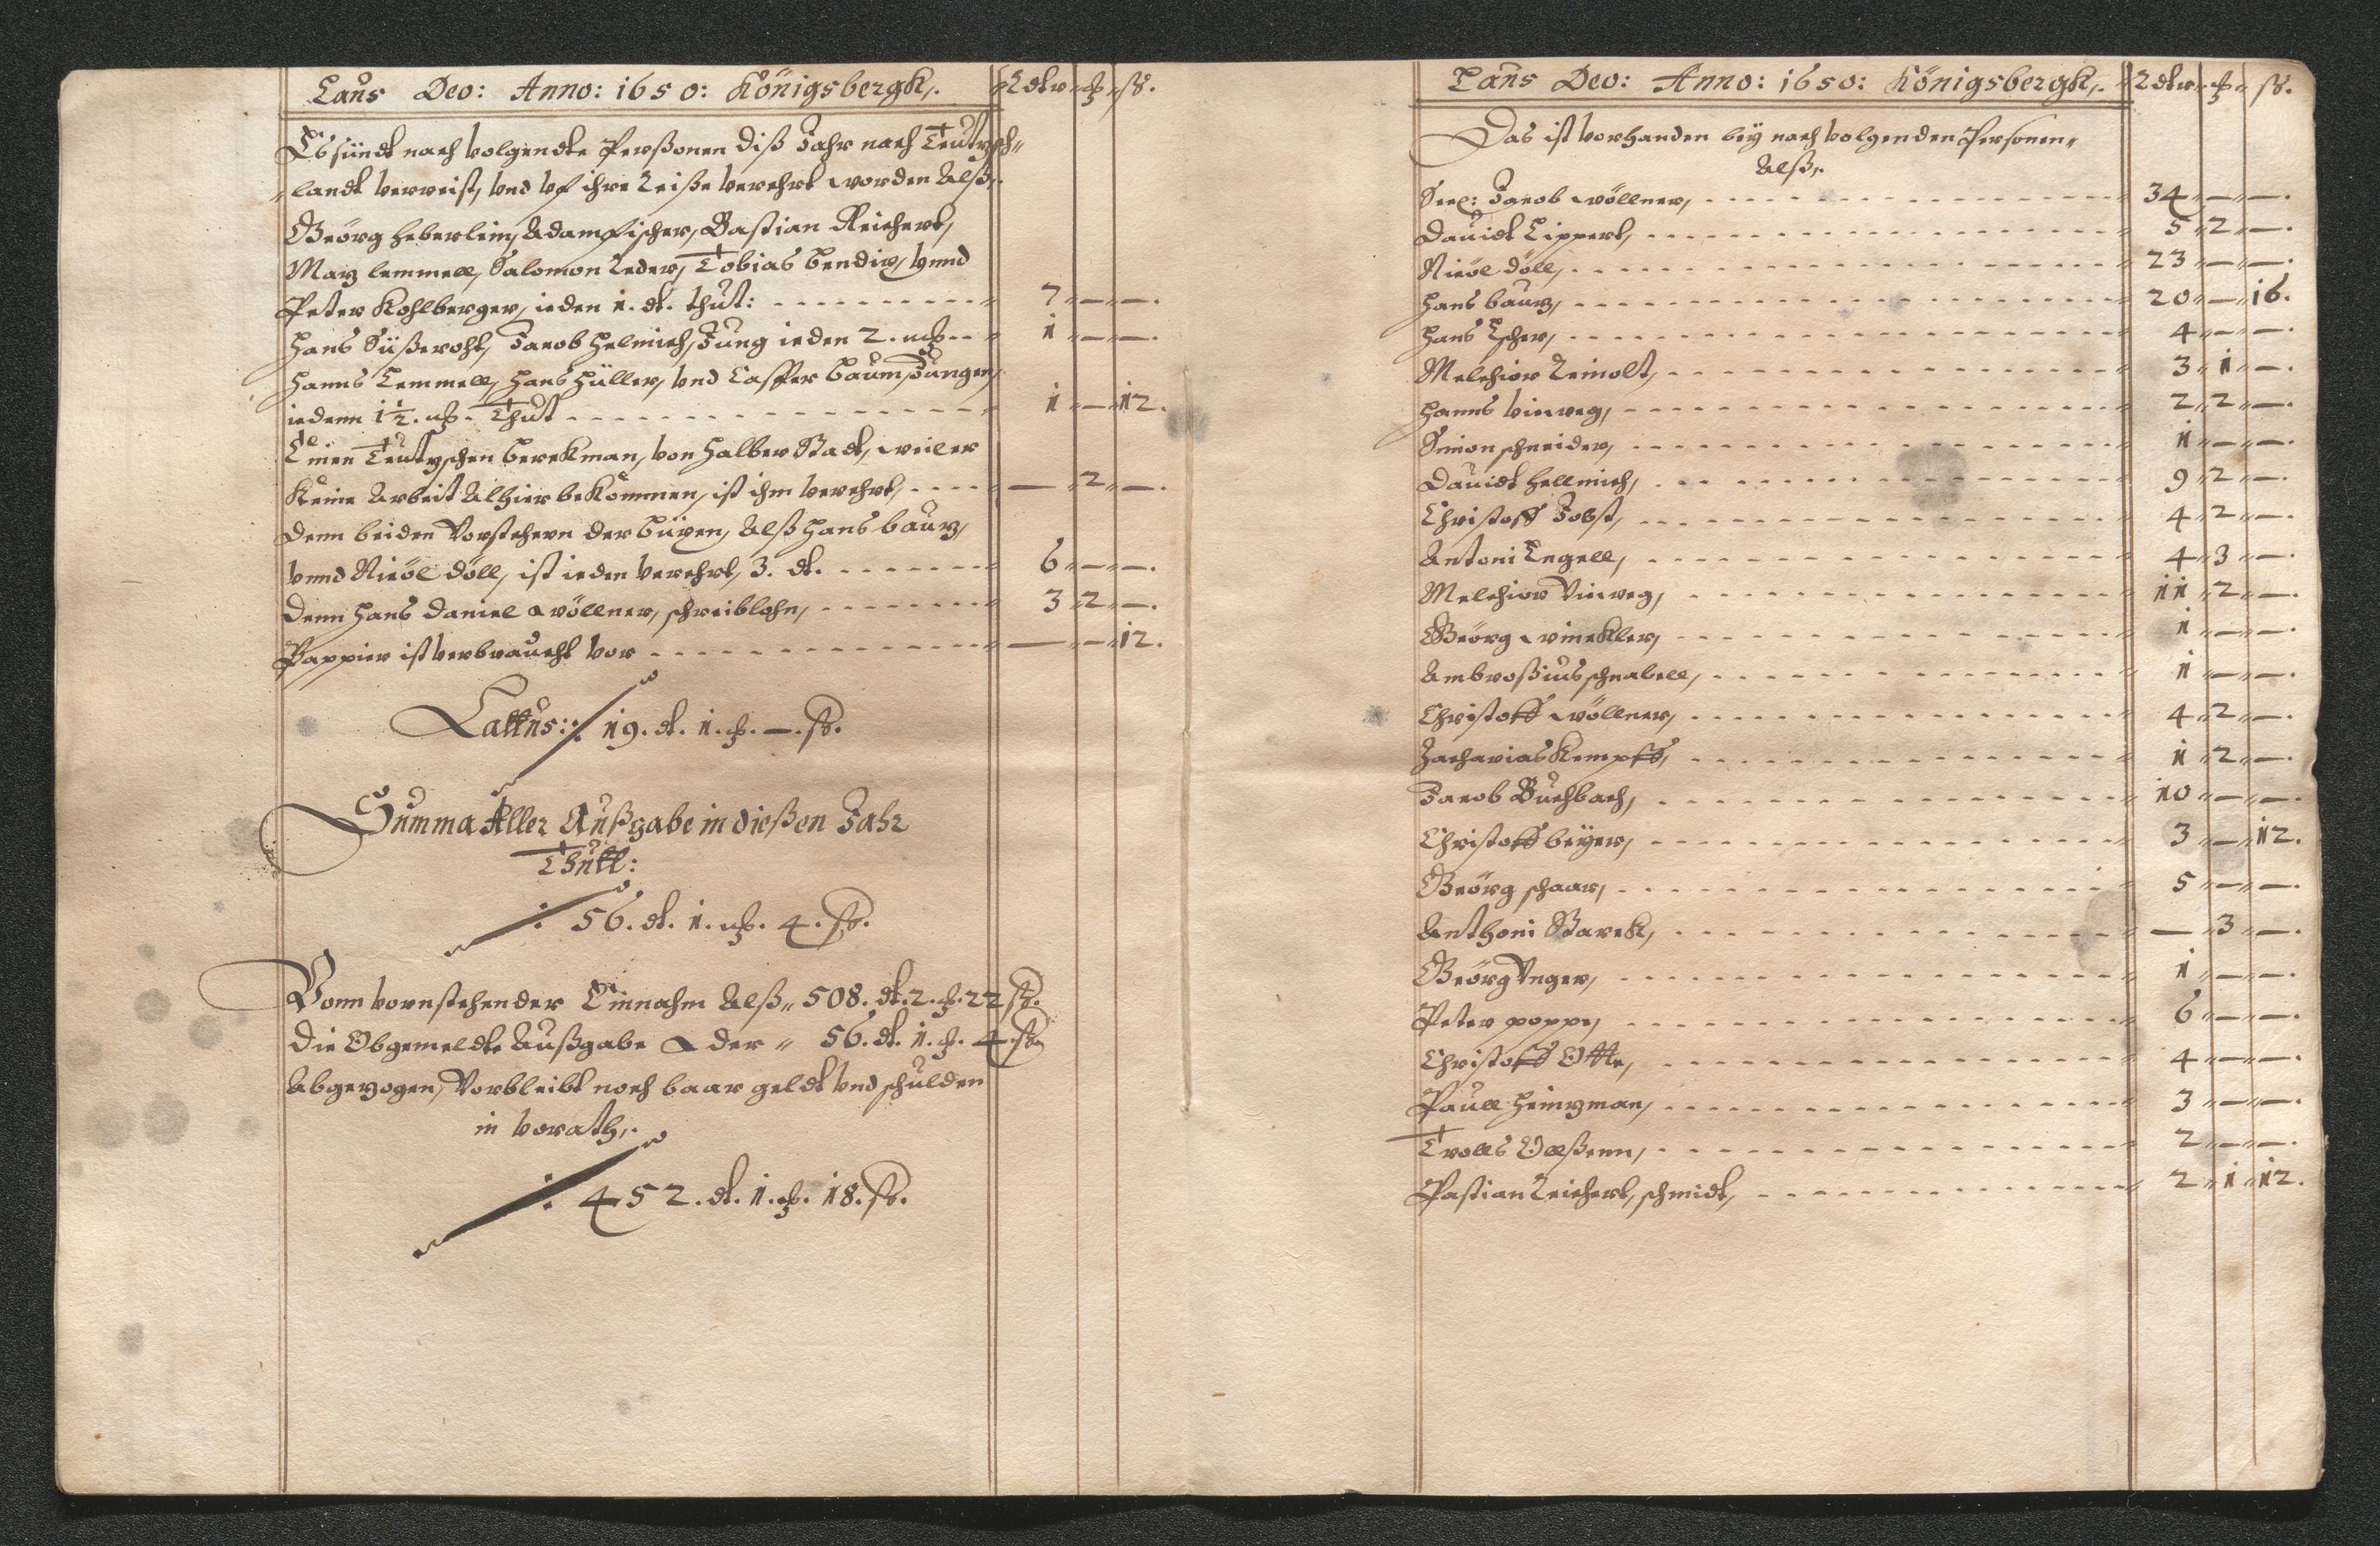 Laus Deo: Anno: 1650: Königsbergk,. Rdlr ₰ ß.
Es sündt nach volgendte Perßonen diß Jahr nach Teutzsch=
=landt verreist, vnd vf ihre Reiße verehrt worden Alß,.
Geörg heberlein, Adam fischer, Bastian Reichert,
Matz lemmell, Salomon Reder, Tobias bendix, vnnd
Peter Kohlberger, ieden 1. dl. thut: 7 — —.
Hans Süßeroht, Jacob helmich, Jung ieden 2. mß. 1 — —.
Hanns Lemmell, Hans Hüller, vnd Casper baum, Jungen,
iedenn 1½. mß. Thut 1 — 12.
Einen Teutzschen berckman, von Halber Stadt, weil er
Keine Arbeit Alhier beKommen, ist ihm verehrt, — 2 —.
Denn beiden Vorstehern der büxen, Alß Hans baur,
vnnd Nicöl döll, ist ieden verehrt, 3. dl. 6 — —.
Denn Hans Daniel wöllner, schreiblohn, 3 2 —.
Pappier ist verbraucht vor — — 12.
Lattus: 19. dl. 1. mß. —. ß.
Summa Aller Außgabe in dießen Jahr
Thutt:
56. dl. 1. mß. 4. ß.
Vonn vornstehender Einnahm Alß 508. dl. 2. mß. 22 ß.
die Obgemeldte Außgabe der 56. dl. 1. mß. 4. ß
Abgezogen, Vorbleibt noch baar geldt vnd schulden
in vorath,.
452. dl. 1. mß. 18. ß.
Laus Deo: Anno: 1650: Königsbergk,. Rdlr ₰ ß.
Das ist vorhanden beÿ nach volgenden Personen,
Alß,.
Seel: Jacob wöllner, 34 — —.
Dauidt Lippert, 5 2 —.
Nicöl döll, 23 — —.
Hans baur, 20 — 16.
Hans Escher, 4 — —.
Melchior Reinolt, 3 1 —.
Hanns vinweg, 2 2 —.
Simon schneider, 1 — —.
Dauidt Hellmich, 9 2 —.
Christoff Jobst, 4 2 —.
Antoni Engell, 4 3 —.
Melchior Vinweg, 11 2 —.
Geörg winckler, 1 — —.
Ambroßius schnabell, 1 — —.
Christoff wöllner, 4 2 —.
Zacharias Kempff, 1 2 —.
Jacob Buchbach, 10 — —.
Christoff beÿer, 3 — 12.
Geörg schaar, 5 — —.
Anthoni Starck, — 3 —.
Geörg Vnger, 1 — —.
Peter poppe, 6 — —.
Christoff Otte, 4 — —.
Paull Heinzman, 3 — —.
Trolls Ollßenn, 2 — —.
Pastian Reichert, schmidt, 2 1 12.